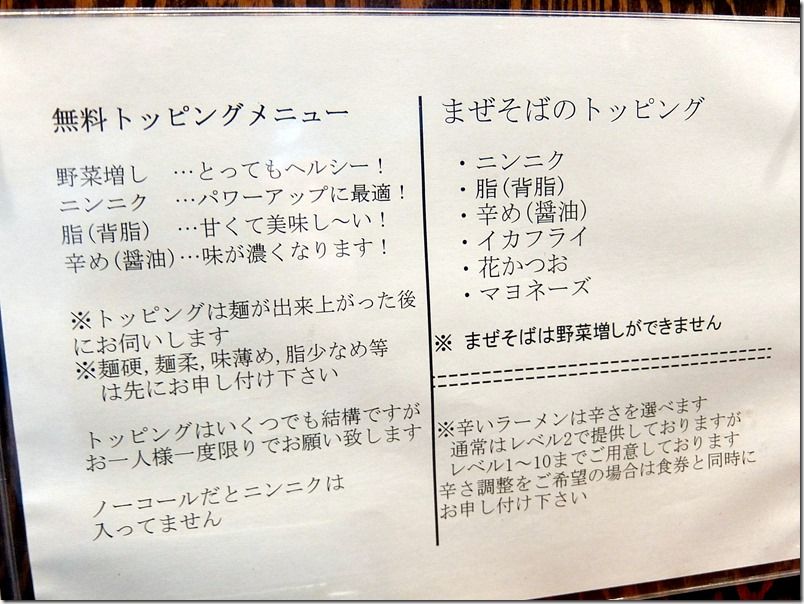 無料トッピングメニュー
野菜増し …とってもヘルシー！
ニンニク …パワーアップに最適！
脂(背脂) …甘くて美味し～い！
辛め(醤油)…味が濃くなります！
※トッピングは麺が出来上がった後
にお伺いします
※麺硬,麺柔,味薄め,脂少なめ等
は先にお申し付け下さい
トッピングはいくつでも結構ですが
お一人様一度限りでお願い致します
ノーコールだとニンニクは
入ってません
まぜそばのトッピング
・ニンニク
・脂(背脂)
・辛め(醤油)
・イカフライ
・花かつお
・マヨネーズ
※ まぜそばは野菜増しができません
※辛いラーメンは辛さを選べます
通常はレベル2で提供しておりますが
レベル1～10までご用意しております
辛さ調整をご希望の場合は食券と同時に
お申し付け下さい